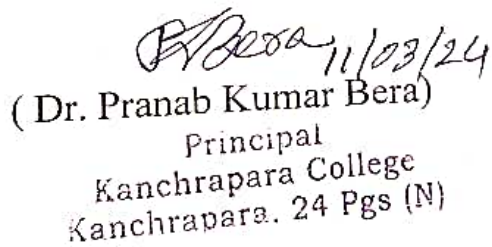 PKBera 11/03/24
( Dr. Pranab Kumar Bera)
Principal
Kanchrapara College
Kanchrapara. 24 Pgs (N)